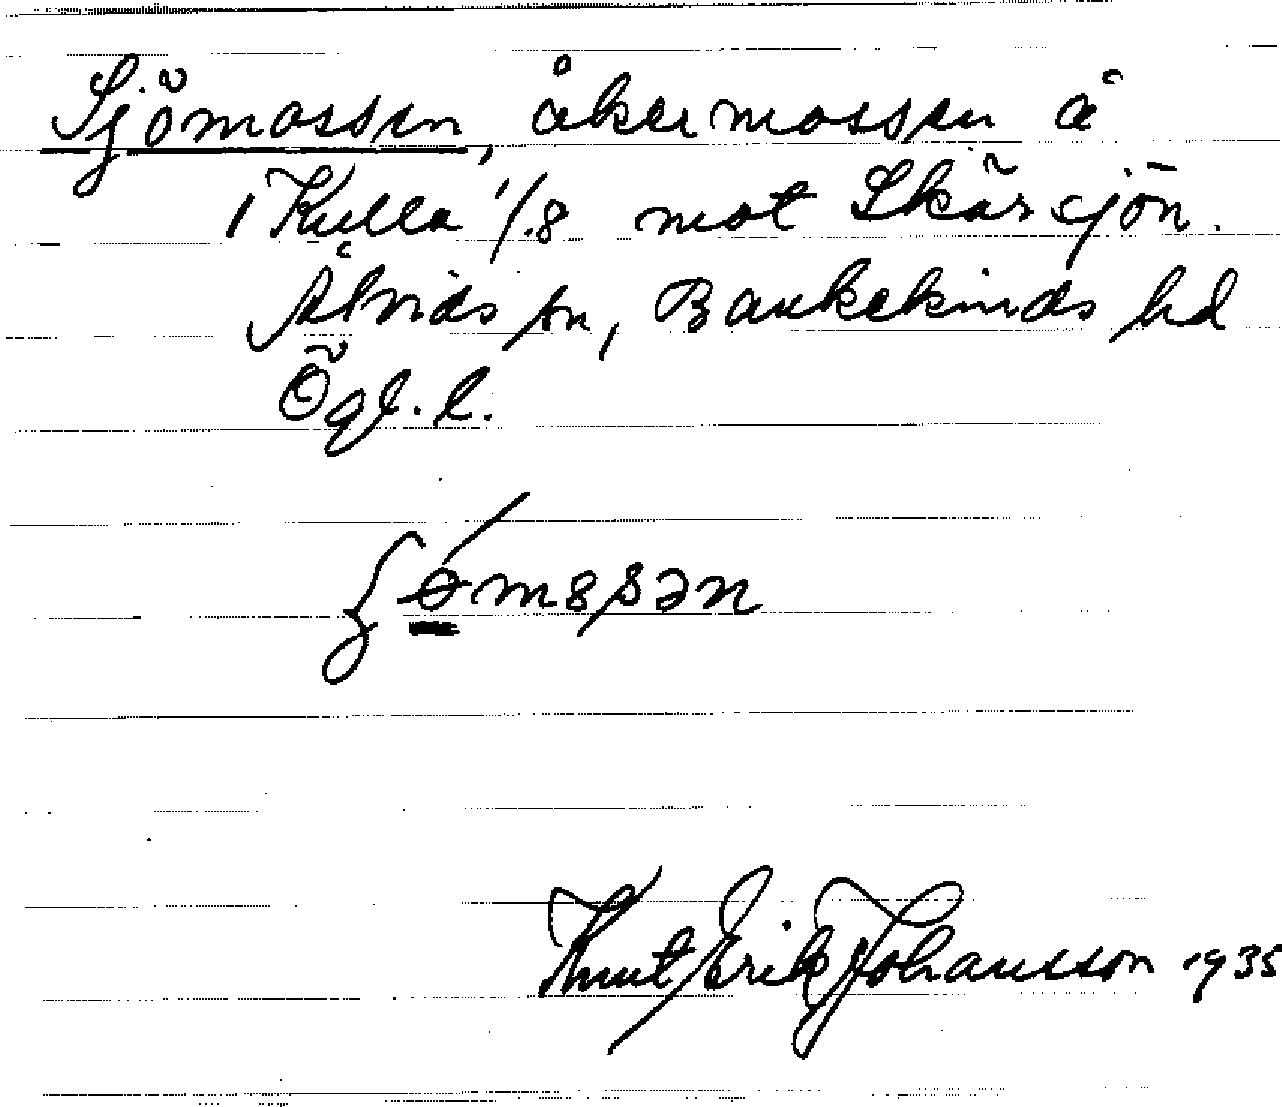 Sjömossen, åkermossen å
Kulla 1/8 mot Skärsjön.
Åtvids sn, Bankekinds hd
Ögl. l.
Knut Erik Johansson 1935